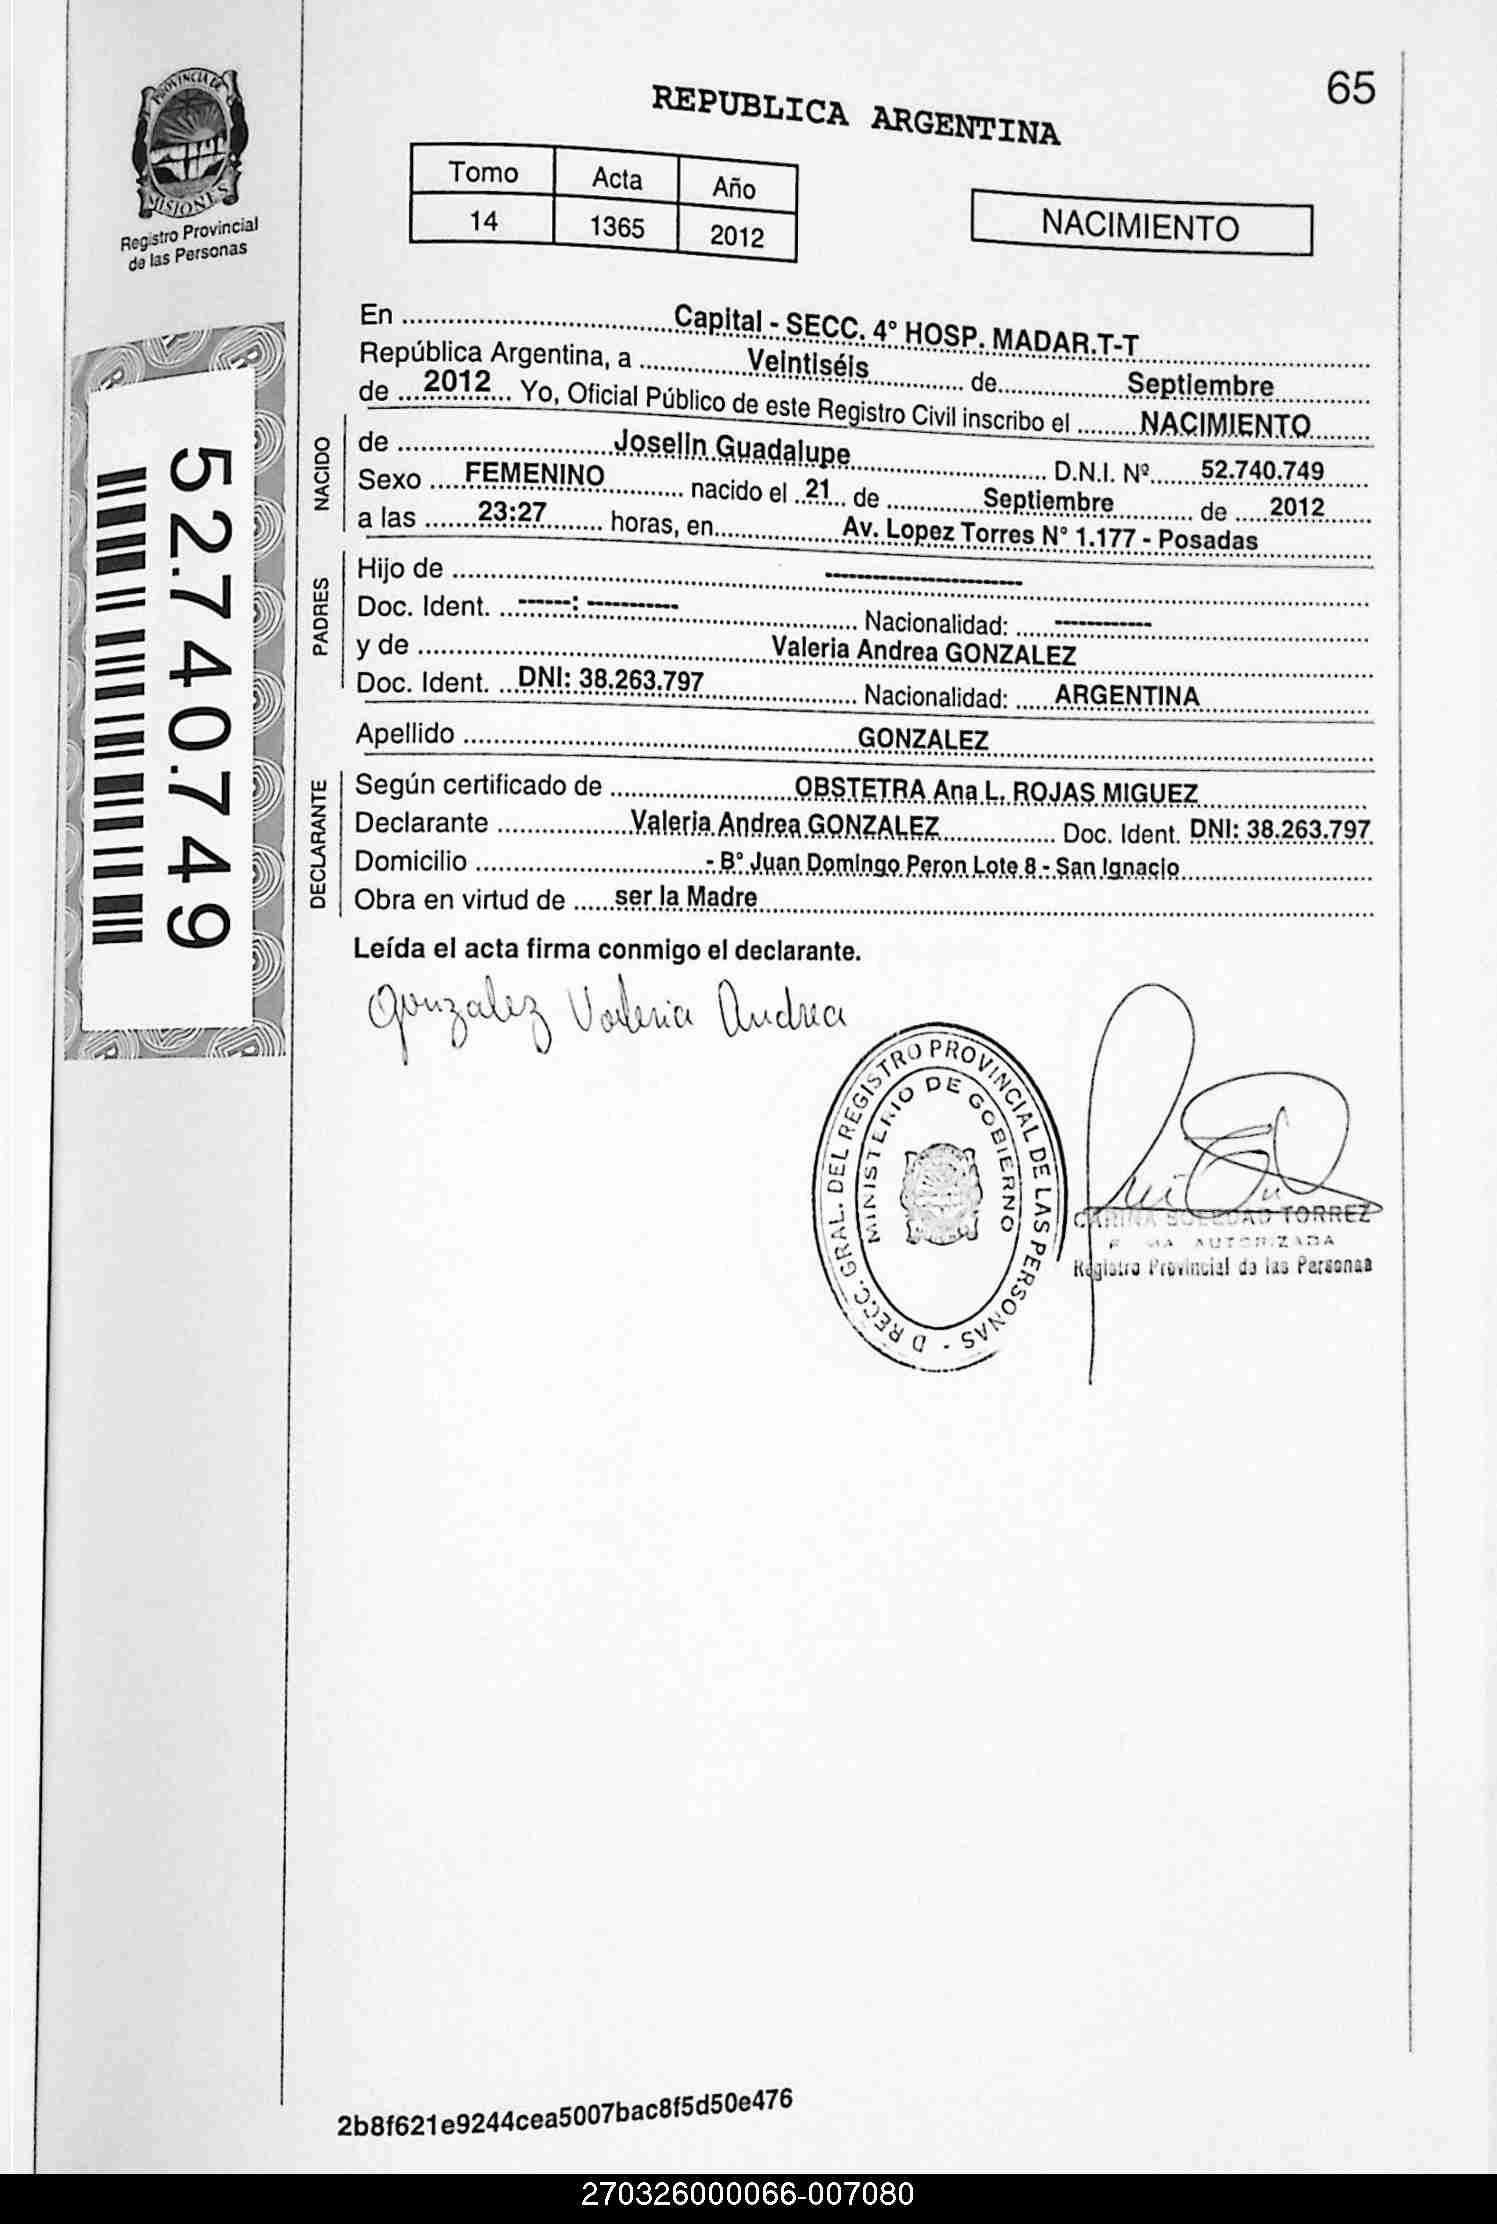 65
PROVINCIA DE
MISIONES
Registro Provincial
de las Personas
REPUBLICA ARGENTINA
Tomo Acta Año
14 1365 2012
NACIMIENTO
52.740.749
En ..... Capital - SECC. 4° HOSP. MADAR.T-T .....
República Argentina, a ..... Veintiséis ..... de ..... Septiembre .....
de ... 2012 ... Yo, Oficial Público de este Registro Civil inscribo el ..... NACIMIENTO .....
NACIDO
de ..... Joselin Guadalupe ..... D.N.I. Nº ..... 52.740.749 .....
Sexo ..... FEMENINO ..... nacido el .. 21 .. de ..... Septiembre ..... de ..... 2012 .....
a las ..... 23:27 ..... horas, en ..... Av. Lopez Torres N° 1.177 - Posadas .....
PADRES
Hijo de ..... -----------------------
Doc. Ident. ... ------: ----------- ..... Nacionalidad: ..... ------------
y de ..... Valeria Andrea GONZALEZ .....
Doc. Ident. ... DNI: 38.263.797 ..... Nacionalidad: ..... ARGENTINA .....
Apellido ..... GONZALEZ .....
DECLARANTE
Según certificado de ..... OBSTETRA Ana L. ROJAS MIGUEZ .....
Declarante ..... Valeria Andrea GONZALEZ ..... Doc. Ident. DNI: 38.263.797
Domicilio ..... - B° Juan Domingo Peron Lote 8 - San Ignacio .....
Obra en virtud de ...... ser la Madre .....
Leída el acta firma conmigo el declarante.
Gonzalez Valeria Andrea
DIRECC. GRAL. DEL REGISTRO PROVINCIAL DE LAS PERSONAS -
MINISTERIO DE GOBIERNO
CARINA SOLEDAD TORREZ
AUTORIZADA
Registro Provincial de las Personas
2b8f621e9244cea5007bac8f5d50e476
270326000066-007080